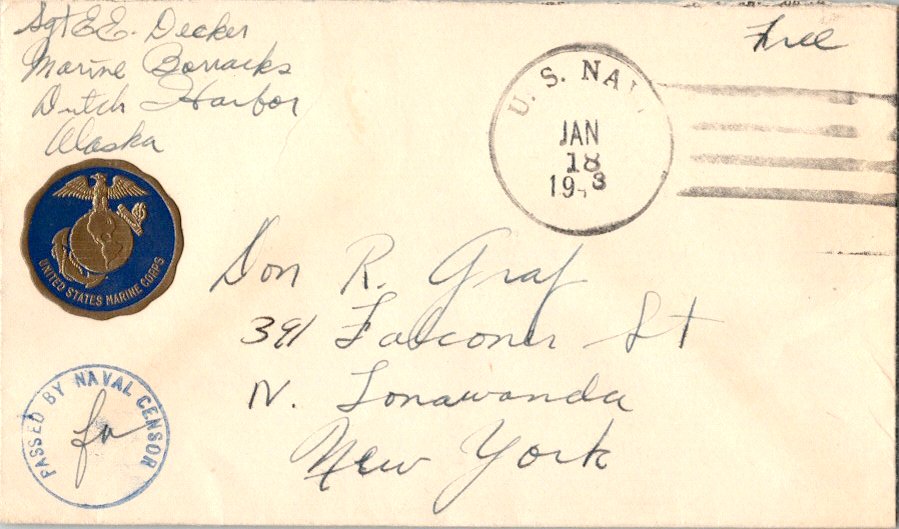 Sgt E.E. Decker
Marine Barracks
Dutch Harbor
Alaska
Free
U. S. NAV
JAN
18
1943
UNITED STATES MARINE CORPS
Don R. Graf
391 Falconer St
N. Tonawanda
New York
PASSED BY NAVAL CENSOR